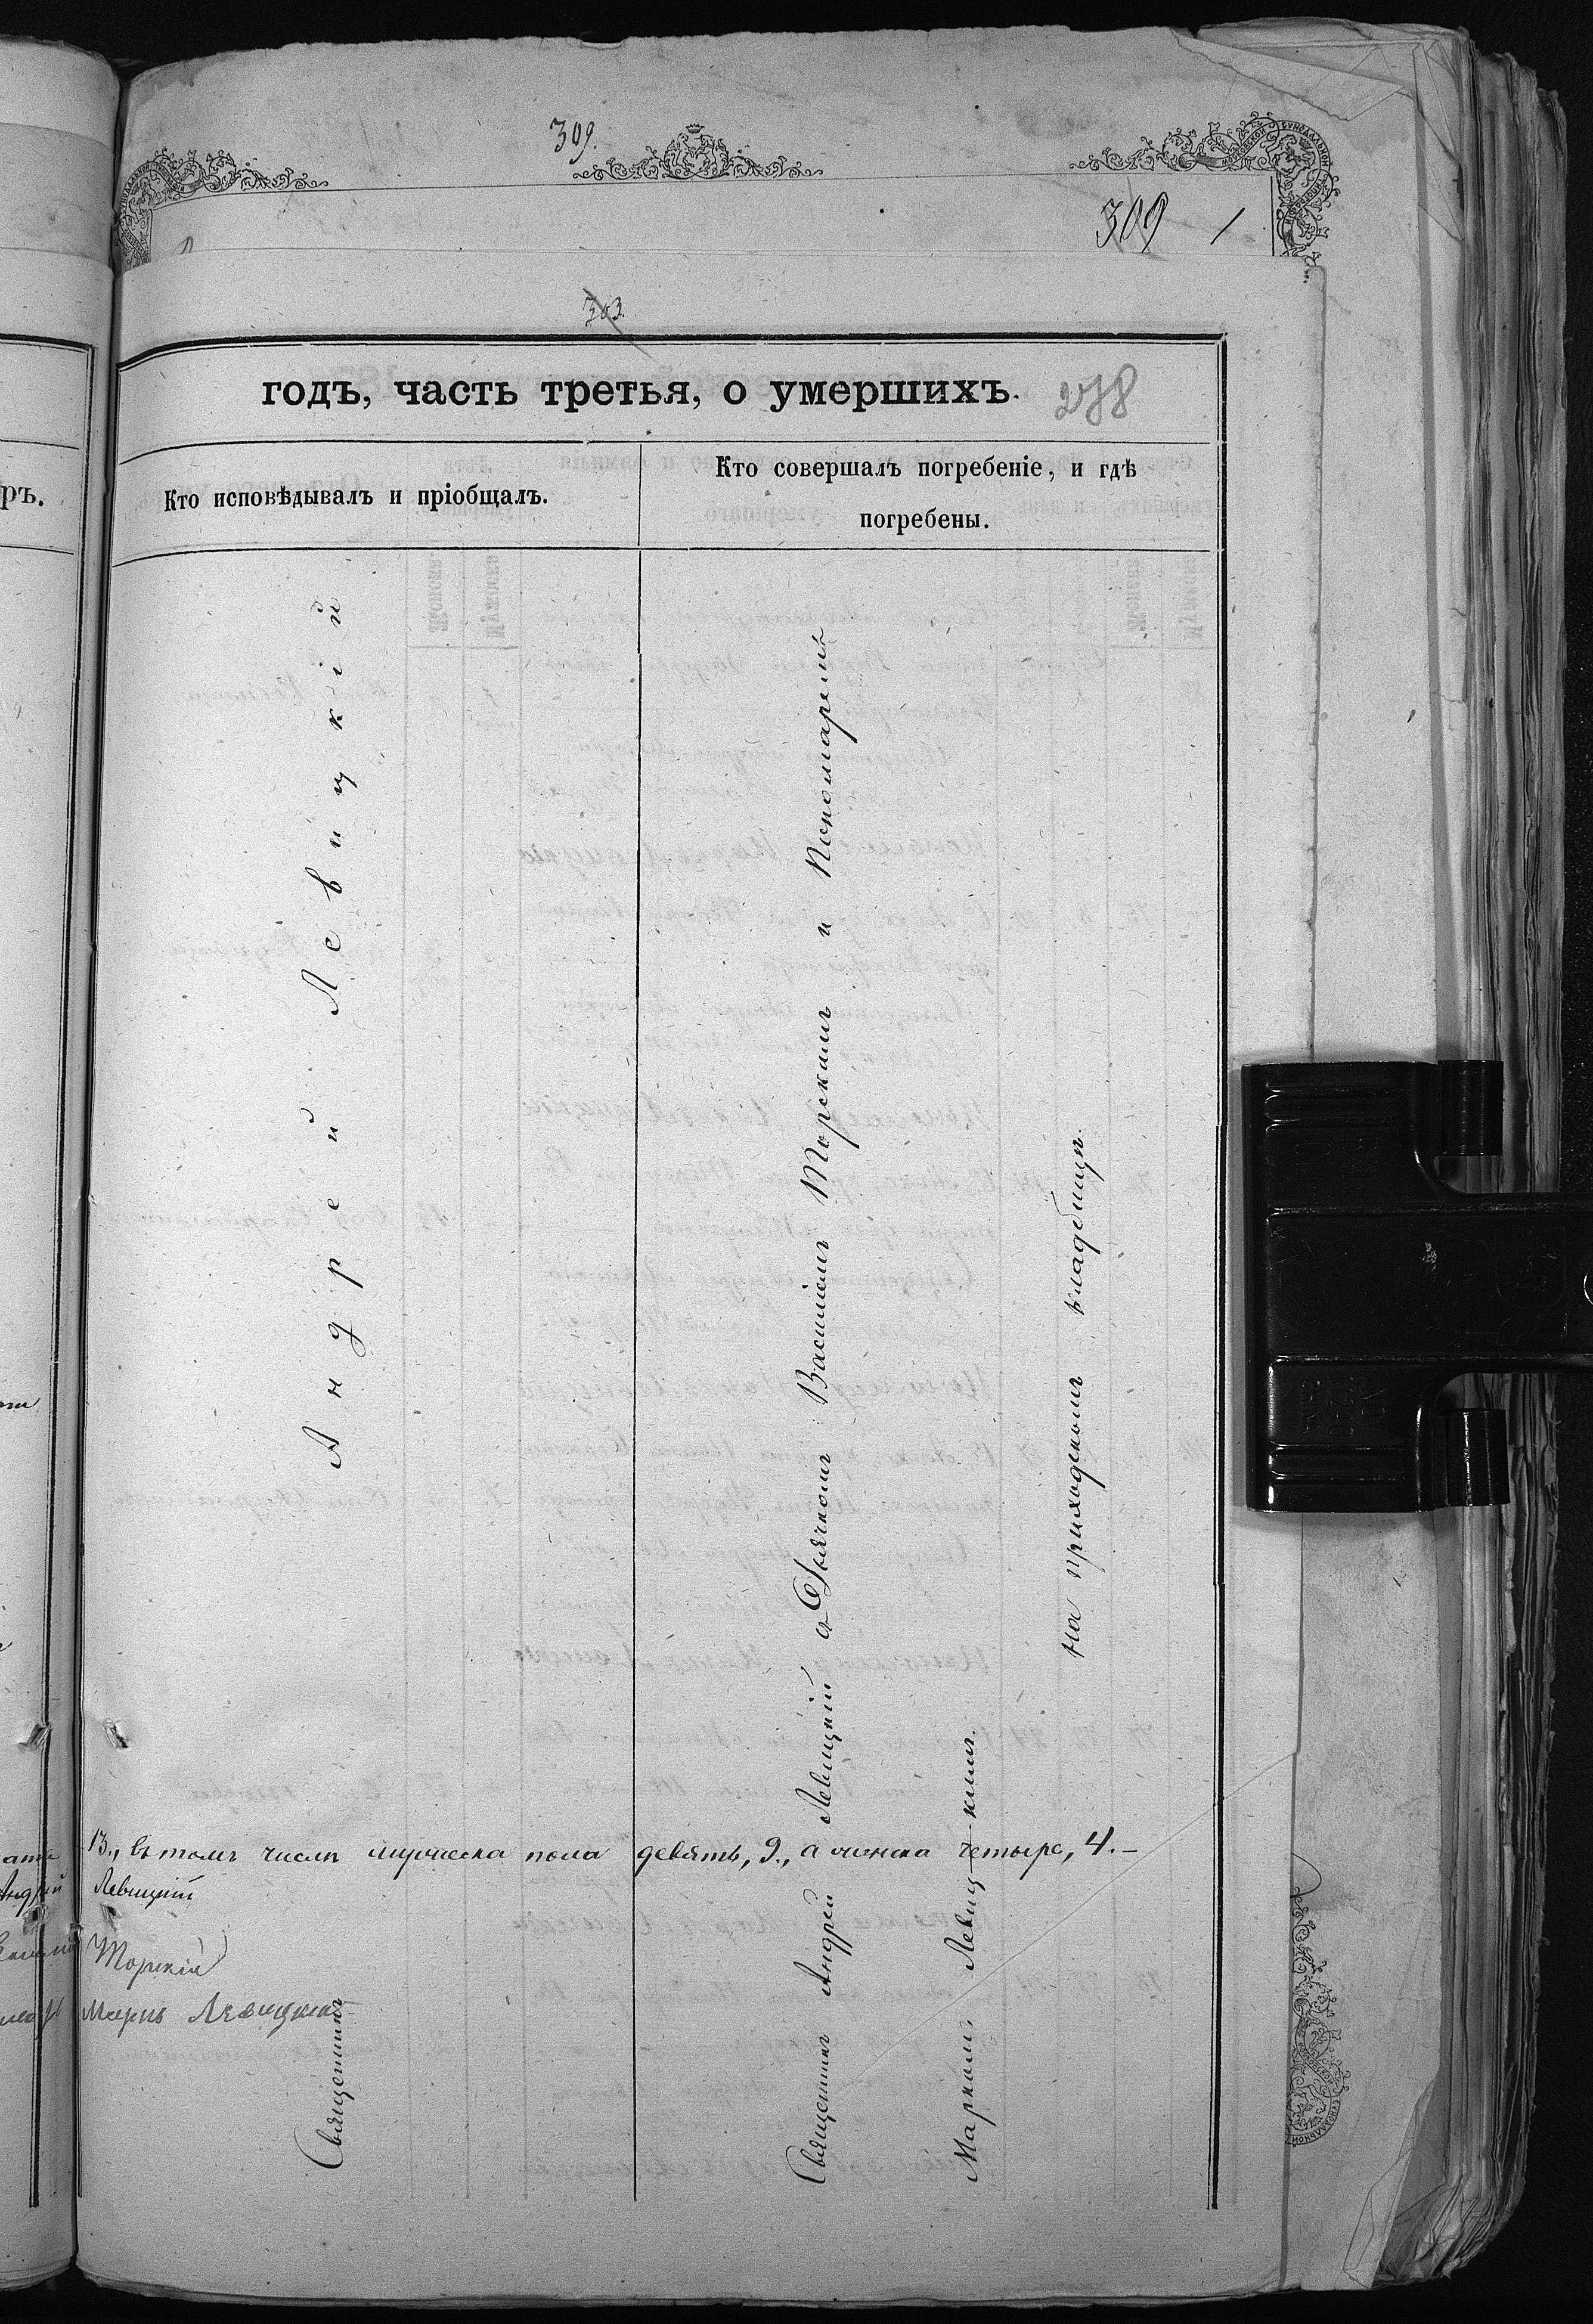 309.
309
303.
годъ, часть третья, о умершихъ.
278
ръ.
Кто исповѣдывалъ и пріобщалъ.
Кто совершалъ погребеніе, и гдѣ
погребены.
Священникъ Андрей Левицкій
Священникъ Андрей Левицкій съ Дьячкомъ Василіемъ Торскимъ и Пономаремъ
Маркомъ Левицкимъ.
На приходскомъ кладбищѣ.
13., въ томъ числѣ мужеска пола девять, 9., а женска четыре, 4.–
Андрей Левицкій
Торскій
Маркъ Левицкій